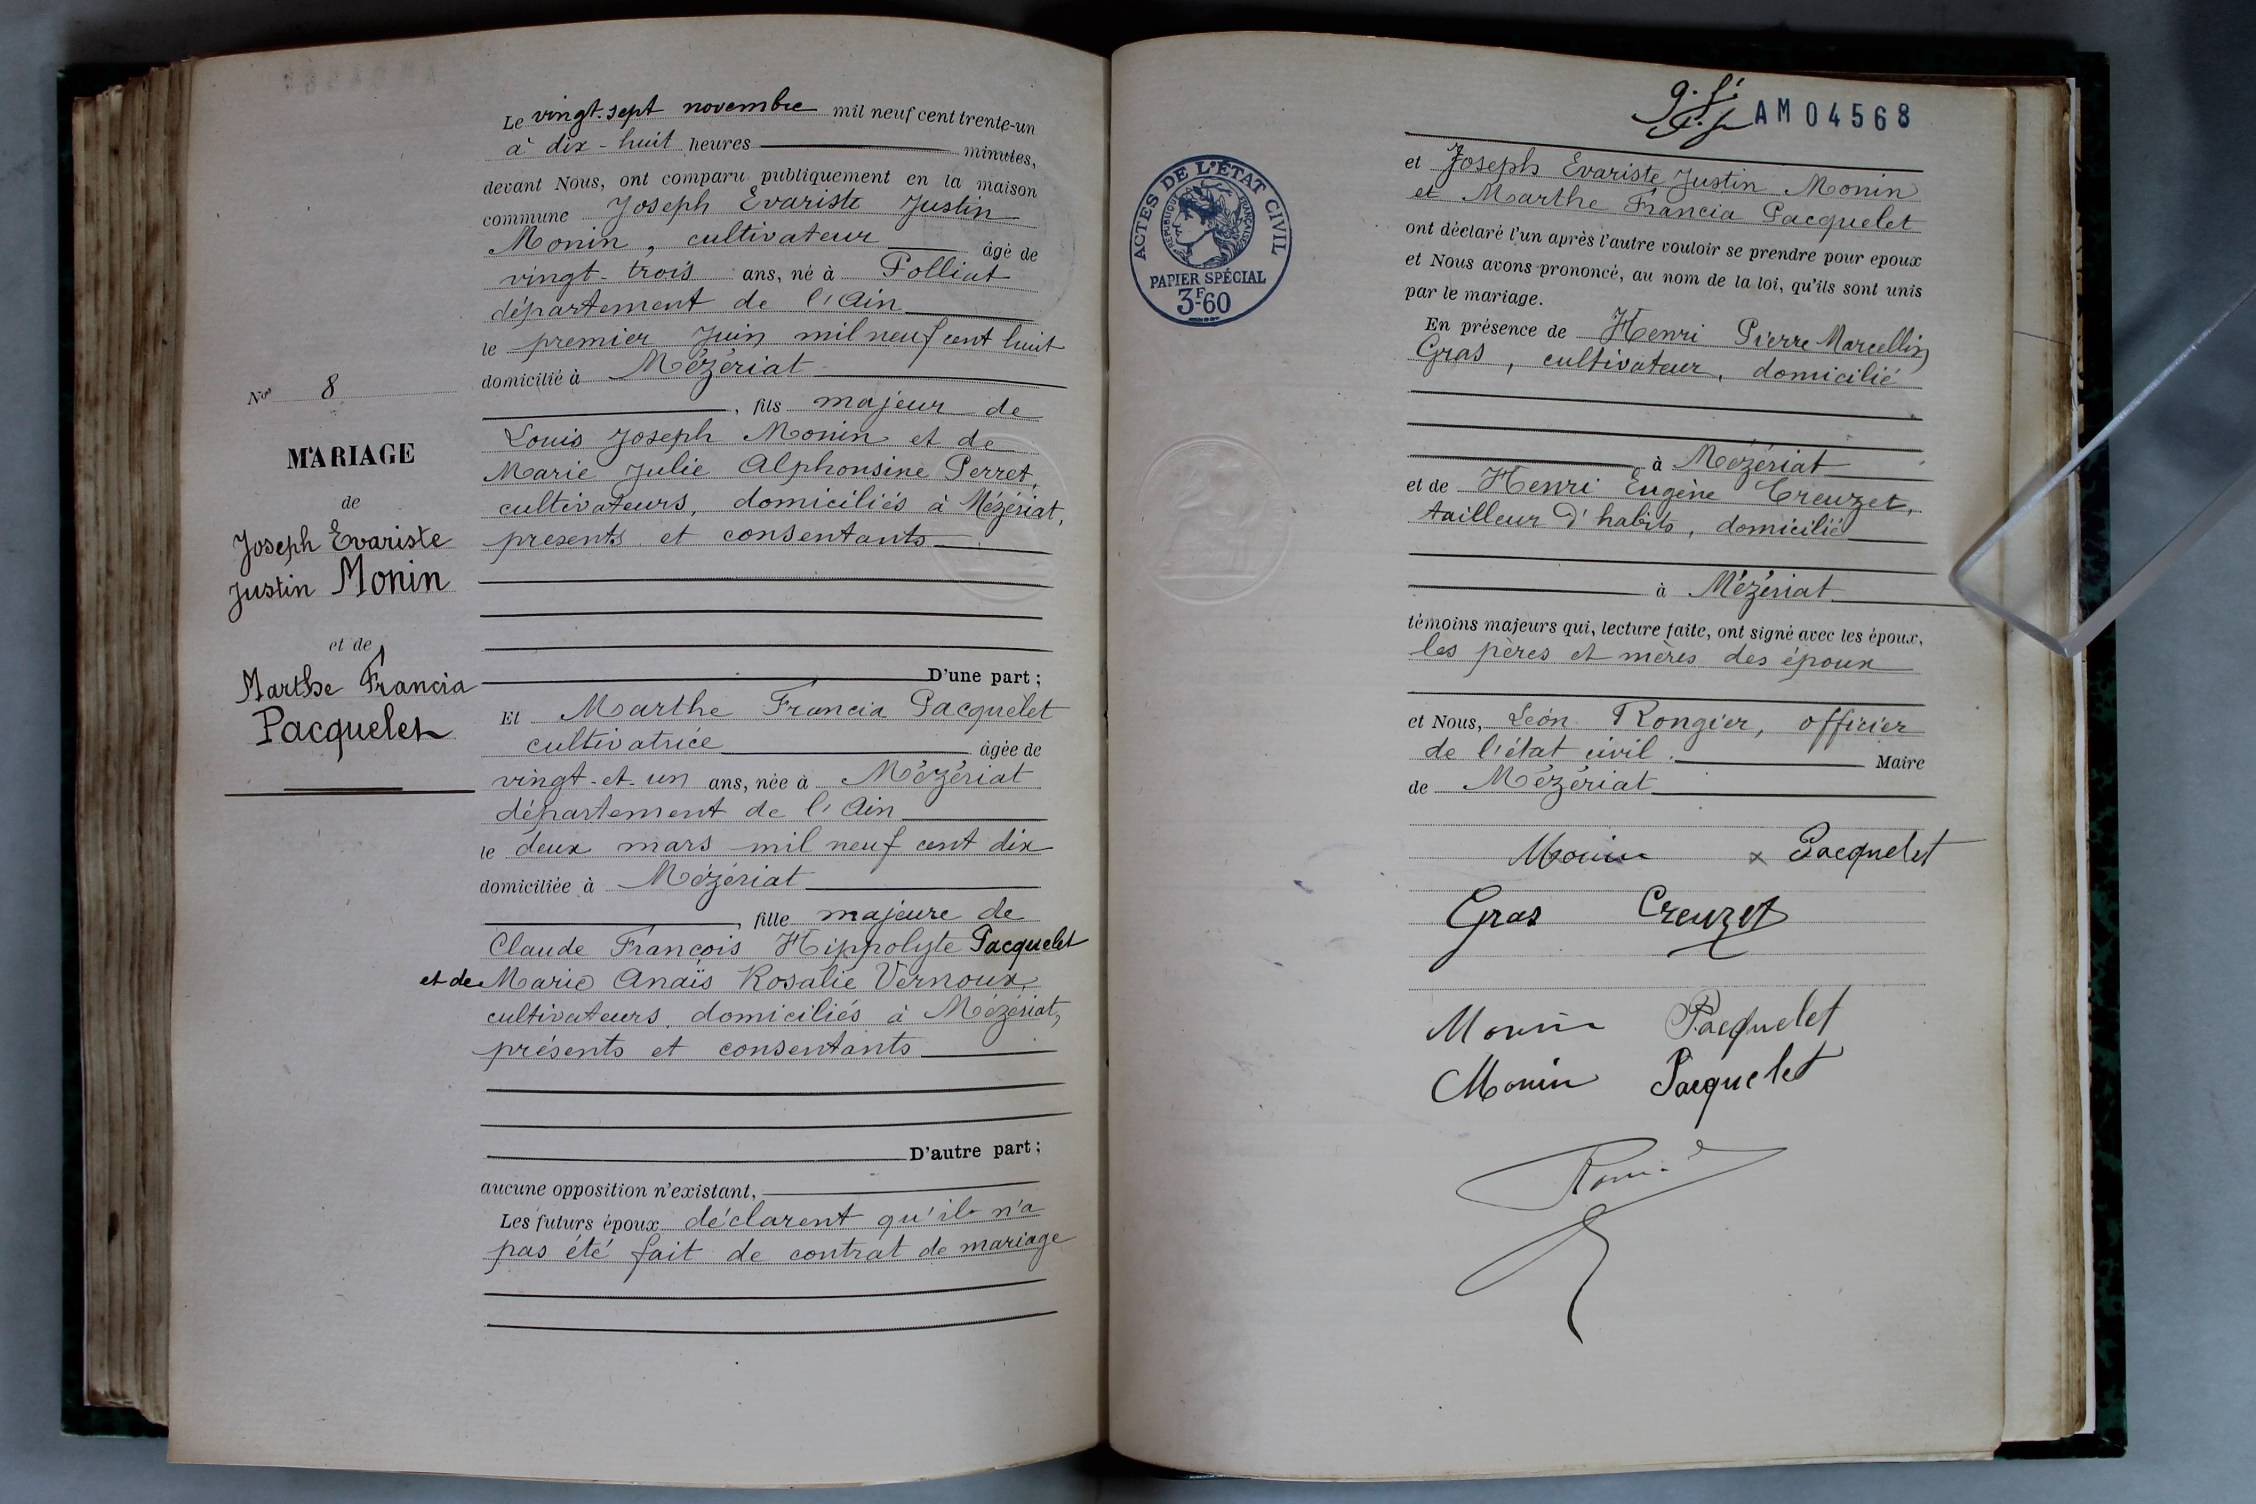 Nos 8
MARIAGE
de
Joseph Evariste
Justin Monin
et de
Marthe Francia
Pacquelet
Le vingt-sept novembre mil neuf cent trente-un
à dix-huit heures minutes,
devant Nous, ont comparu publiquement en la maison
commune Joseph Evariste Justin
Monin, cultivateur âgé de
vingt-trois ans, né à Polliat
département de l'Ain
le premier Juin mil neuf cent huit
domicilié à Mézériat
, fils majeur de
Louis Joseph Monin et de
Marie Julie Alphonsine Perret,
cultivateurs, domiciliés à Mézériat,
présents et consentants
D'une part ;
Et Marthe Francia Pacquelet
cultivatrice âgée de
vingt-et-un ans, née à Mézériat
département de l'Ain
le deux mars mil neuf cent dix
domiciliée à Mézériat
, fille majeure de
Claude François Hippolyte Pacquelet
et de Marie Anaïs Rosalie Vernoux,
cultivateurs, domiciliés à Mézériat,
présents et consentants
D'autre part ;
aucune opposition n'existant,
Les futurs époux déclarent qu'il n'a
pas été fait de contrat de mariage
AM04568
ACTES DE L'ÉTAT CIVIL
RÉPUBLIQUE FRANÇAISE
PAPIER SPÉCIAL
3F60
et Joseph Evariste Justin Monin
et Marthe Francia Pacquelet
ont déclaré l'un après l'autre vouloir se prendre pour epoux
et Nous avons prononcé, au nom de la loi, qu'ils sont unis
par le mariage.
En présence de Henri Pierre Marcellin
Gras, cultivateur, domicilié
à Mézériat
et de Henri Eugène Creuzet,
tailleur d'habits, domicilié
à Mézériat
témoins majeurs qui, lecture faite, ont signé avec les époux,
les pères et mères des époux
et Nous, Léon Rongier, officier
de l'état civil. Maire
de Mézériat
Monin x Pacquelet
Gras Creuzet
Monin Pacquelet
Monin Pacquelet